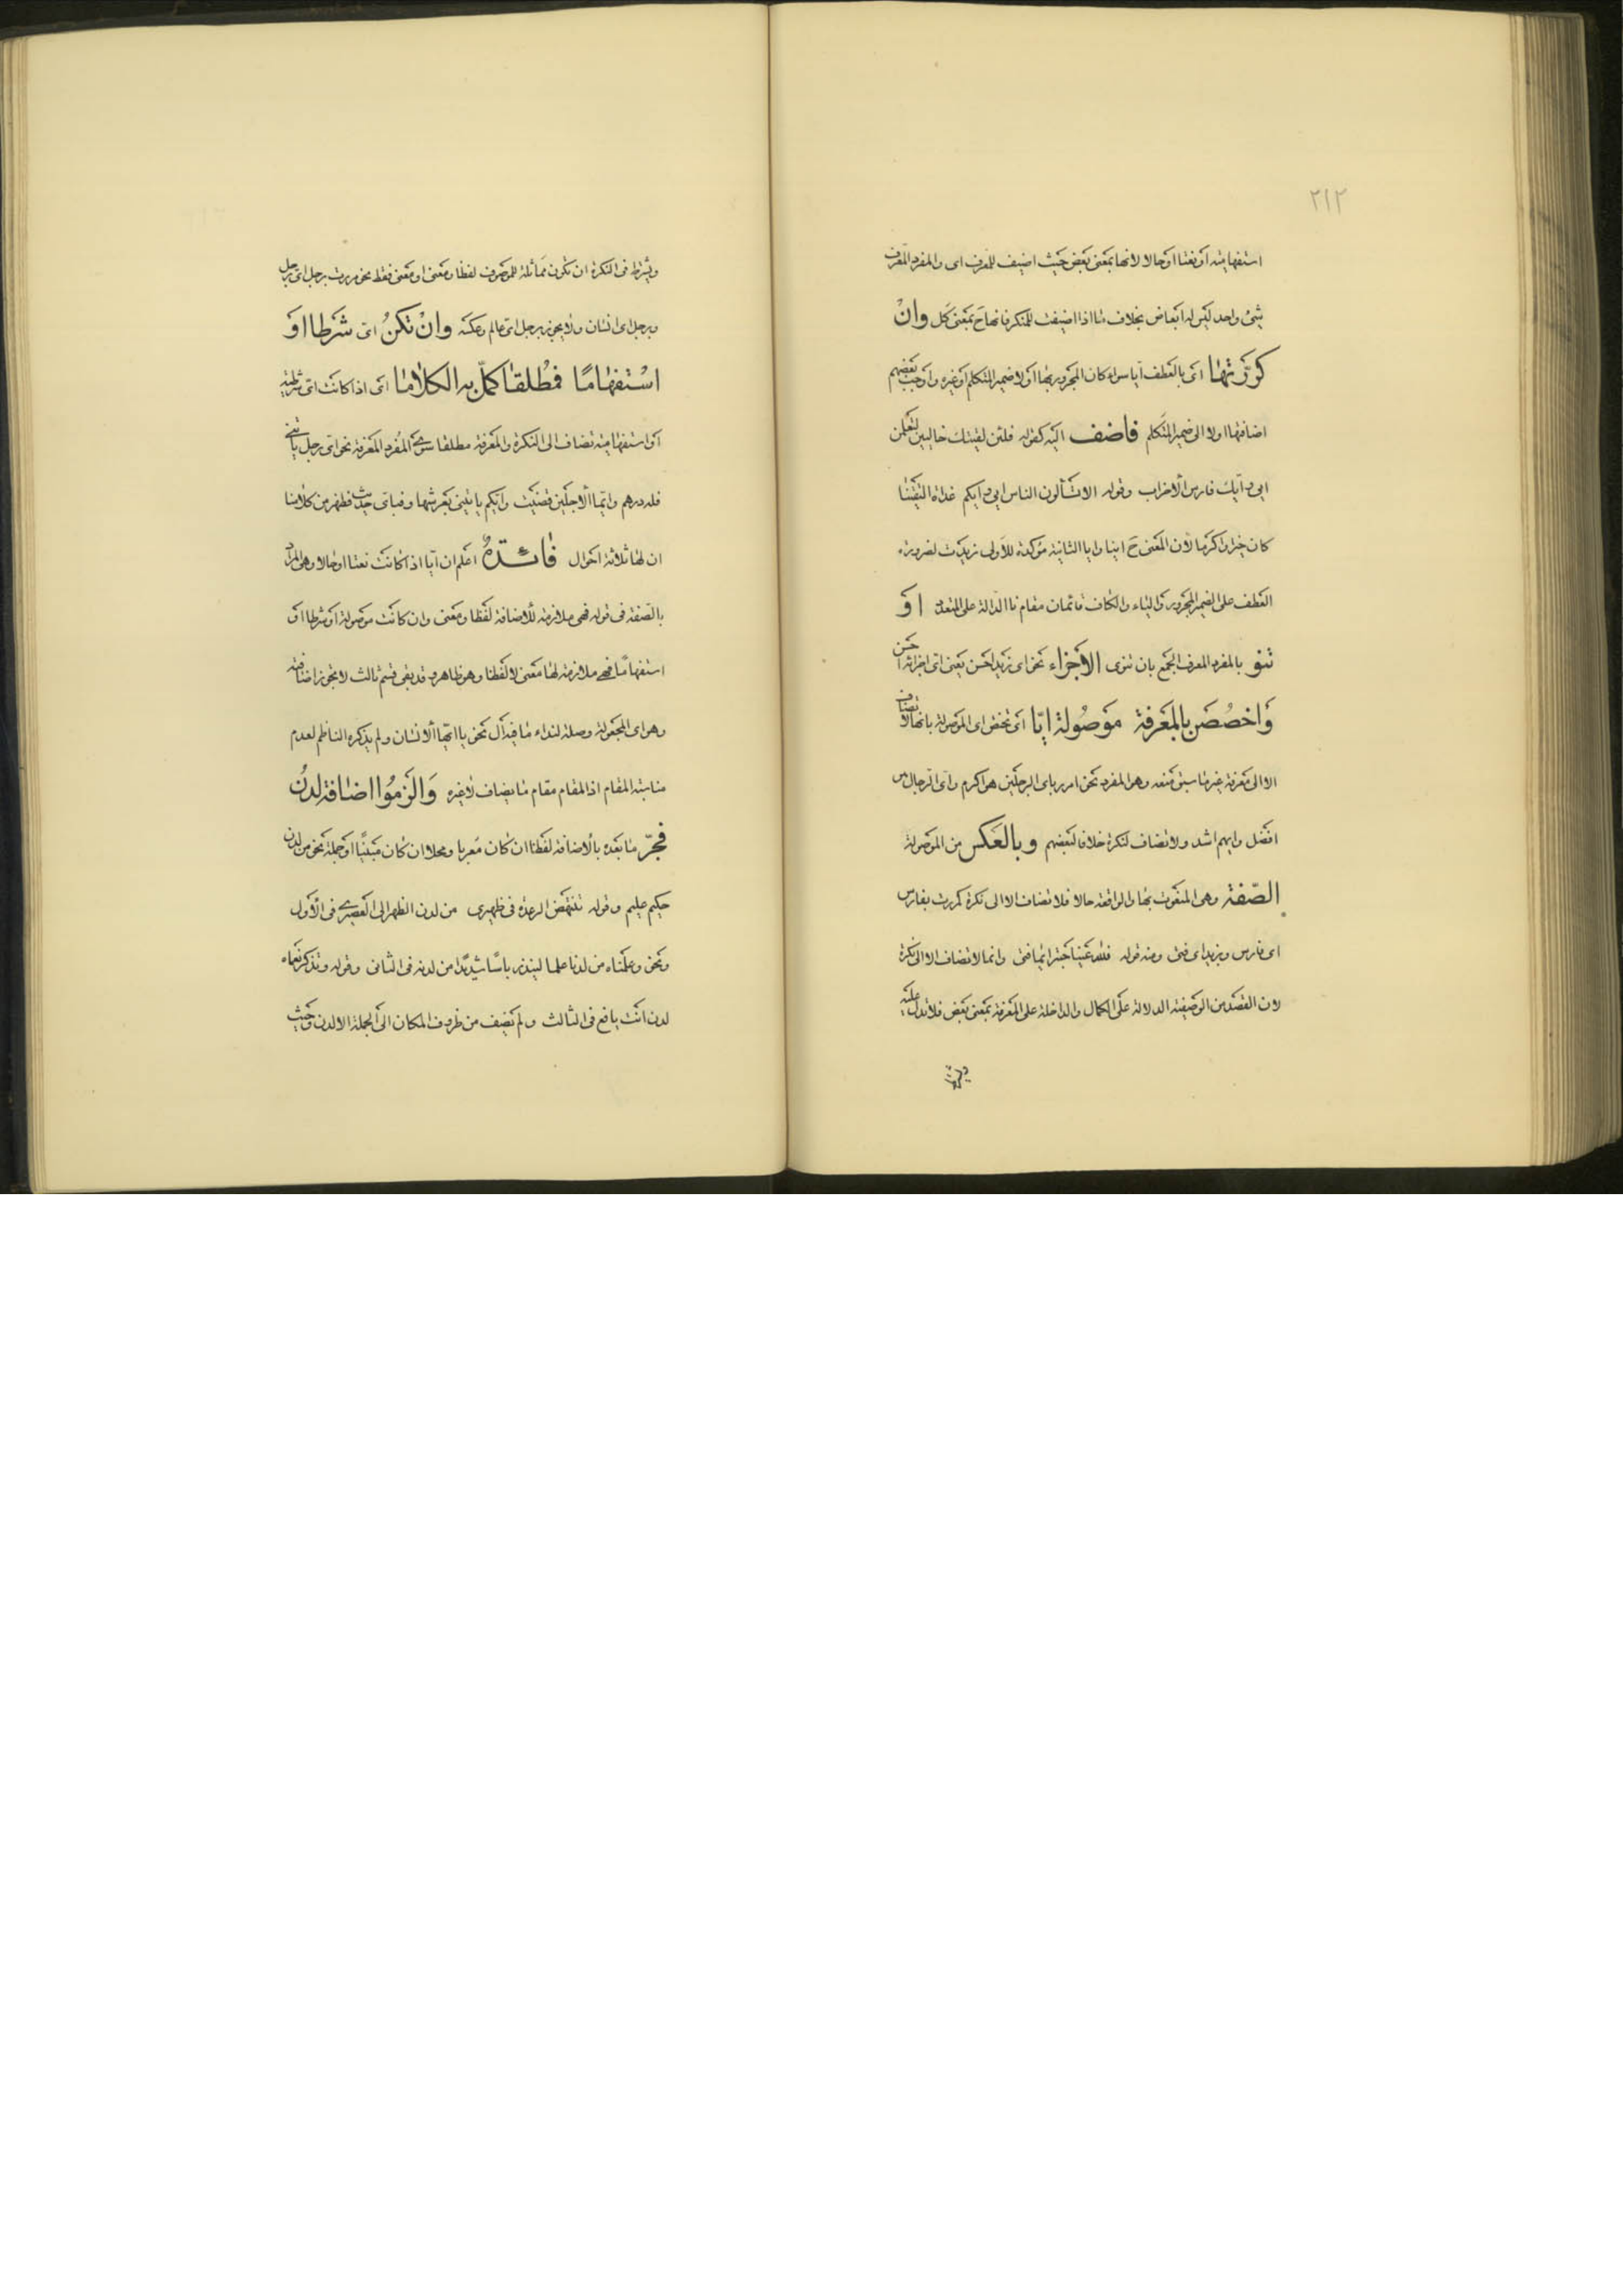 ٢١٢
استفهامية او نعتا او حالا لانها بمعنى بعض حيث اضيف للمعرف اى والمفرد المعرف
شئ واحد ليس له ابعاض بخلاف ما اذا اضيفت للمنكر فانها ح بمعنى كل وان
كررتها اى بالعطف ايا سواء كان المجرور بها اولا ضمير المتكلم او غيره واوجب بعضهم
اضافتها اولا الى ضمير المتكلم فاضف اليه كقوله فلئن لقيتك خاليين لتعلمن
ايى وايك فارس الاحزاب وقوله الا تسألون الناس ايى وايكم غداة التقينا
كان خيرا واكرما لان المعنى ح اينا وايا الثانية مؤكدة للاولى زيدت لضرورة
العطف على الضمير المجرور والياء والكاف قائمان مقام نا الدالة على المتعدد او
تنو بالمفرد المعرف الجمع بان تنوى الاجزاء نحو اى زيد احسن يعنى اى اجزائه احسن
واخصصن بالمعرفة موصولة ايا اى تخص اى الموصولة بانها لا تضاف
الا الى معرفة غير ما سبق منعه وهو المفرد نحو امرر باى الرجلين هو اكرم واى الرجال هو
افضل وايهم اشد ولا تضاف لنكرة خلافا لبعضهم وبالعكس من الموصولة
الصفة وهى المنعوت بها والواقعة حالا فلا تضاف الا الى نكرة كمررت بفارس
اى فارس وبزيد اى فتى ومنه قوله فلله عينا حبتر ايما فتى وانما لا تضاف الا الى نكرة
لان القصد من الوصفية الدلالة على الكمال والداخلة على المعرفة بمعنى بعض فلا تدل عليه
ويشترط
ويشترط فى النكرة ان تكون مماثلة للموصوف لفظا ومعنى او معنى فقط نحو مررت برجل اى رجل
وبرجل اى انسان ولا يجوز برجل اى عالم وعكسه وان تكن اى شرطا او
استفهاما فمطلقا كمل به الكلاما اى اذا كانت اى شرطية
او استفهامية تضاف الى النكرة والمعرفة مطلقا سوى المفرد المعرفة نحو اى رجل ياتينى
فله درهم وايما الاجلين قضيت وايكم ياتينى بعرشها وفباى حديث فظهر من كلامنا
ان لها ثلاثة احوال فائدة اعلم ان ايا اذا كانت نعتا او حالا وهى المراد
بالصفة فى قوله فهى ملازمة للاضافة لفظا ومعنى وان كانت موصولة او شرطا او
استفهاما فهى ملازمة لها معنى لا لفظا وهو ظاهر وقد بقى قسم ثالث لا يجوز اضافته
وهو اى المجعولة وصلة لنداء ما فيه ال نحو يا ايها الانسان ولم يذكره الناظم لعدم
مناسبته المقام اذ المقام مقام ما يضاف لا غيره والزموا اضافة لدن
فجر ما بعده بالاضافة لفظا ان كان معربا ومحلا ان كان مبنيا او جملة نحو من لدن
حكيم عليم وقوله تنتهض الرعدة فى ظهيرى من لدن الظهر الى العصير فى الاول
ونحو وعلمناه من لدنا علما لينذر باسا شديدا من لدنه فى الثانى وقوله وتذكر نعماه
لدن انت يافع فى الثالث ولم يضف من ظروف المكان الى الجملة الا لدن وحيث